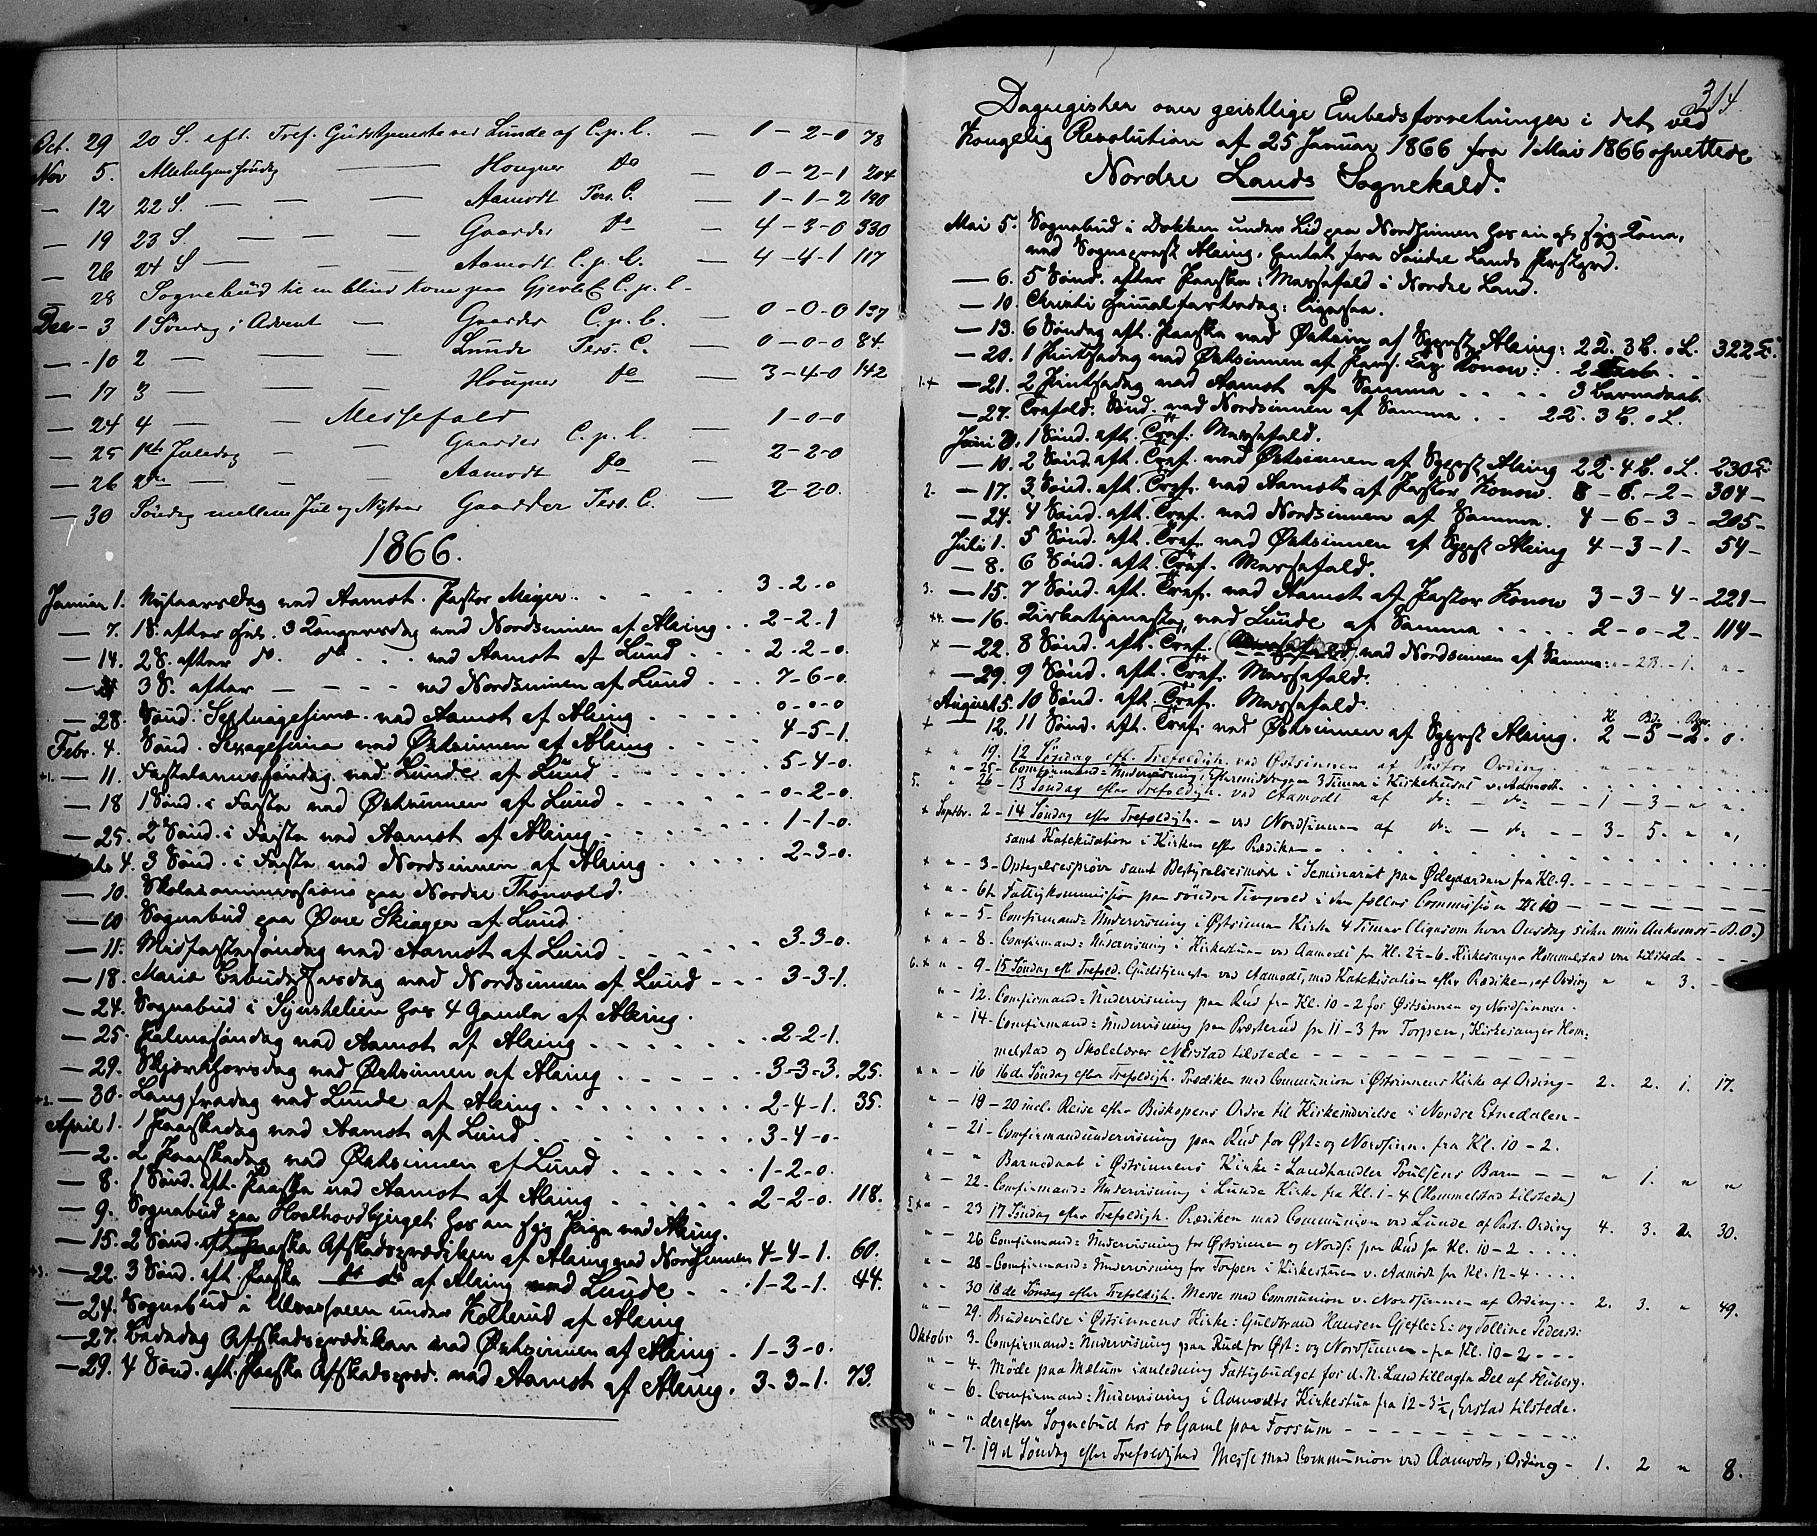 Oct. 29 20 S. eft. Tref. Gudstjeneste ved Lunde af C.p.l. — 1-2-0 78
Nov 5. Allehelgensöndag — Hougner Do — 0-2-1 204
— 12 22 S. — — — Aamodt Pers. C. — 1-1-2 190
— 19 23 S. — — — Gaarder Do — 4-3-0 330
— 26 24 S — — — Aamodt C.p.l. — 4-4-1 117
— 28 Sognebud til en blind Kone paa C.p.l.
Dec - 3 1 Söndag i Advent — Gaarder C.p.l. — 0-0-0 137
— 10 2 — — — Lunde Pers. C. — 0-0-0 84.
— 17 3 — Hougner Do — 3-4-0 142
— 24 4 — — Messefald
— 25 1ste Juledag — — Gaarder C.p.l. — 1-0-0
— 26 2den — — Aamodt Do — 2-2-0
— 30 Söndag mellem Jul og Nytaar Gaarder Pers. C. — 2-2-0.
1866.
Januar 1. Nytaarsdag ved Aamot. Pastor Meyer . . . . 3-2-0
— 7. 1 S. efter Jul. 3 Kongersdag ved Nordsinnen af Alsing . . 2-2-1
— 14. 2 S. efter do. do. . . . ved Aamot af Lund . . . 2-2-0.
— 21 3 S. efter — — — . ved Nordsinnen af Lund . . . 7-6-0.
— 28. Sönd. Septuagesima ved Aamot af Alsing . . . . 0-0-0
Febr. 4. Sönd. Sexagesima ved Østsinnen af Alsing . . . . 4-5-1.
— 11. Fastelavnssöndag ved Lunde af Lund . . . . 5-4-0.
— 18 1 Sönd. i Faste ved Østsinnen af Lund . . . . 0-2-0.
— 25. 2 Sönd. i Faste ved Aamot af Alsing . . . . 1-1-0.
4. 3 Sönd. i Faste ved Nordsinnen af Alsing . . . . 2-3-0.
— 10. Skolecommissions paa Nordre Thonvold.
— 10 Sognebud paa Øvre Skiager af Lund.
— 11. Midfastesöndag ved Aamot af Lund . . . . 3-3-0.
— 18. Mariæ Bebudelsesdag ved Nordsinnen af Lund . . . 3-3-1.
— 24. Sognebud i hos 4 Gamle af Alsing.
— 25. Palmesöndag ved Aamot af Alsing . . . . 2-2-1.
— 29. Skjærthorsdag ved Østsinnen af Alsing . . . . 3-3-3. 25.
— 30. Langfredag ved Lunde af Alsing . . . . 2-4-1. 35.
April 1. 1 Paaskedag ved Aamot af Lund . . . . 3-4-0-
— 2. 2 Paaskedag ved Østsinnen af Lund . . . . 1-2-0.
— 8. 1 Sönd. eft. Paaske ved Aamot af Alsing . . . . 2-2-0. 118.
— 9. Sognebud paa Hoslhovdbjerget hos en syg Pige ved Alsing.
— 15. 2 Sönd. eft. Paaske Afskedsprædiken af Alsing ved Nordsinnen 4-4-1. 60.
— 22. 3 Sönd. eft. Paaske do do af Alsing ved Lunde . . 1-2-1. 44.
— 24. Sognebud i under Kollerud af Alsing
— 27. Bededag Afskedsprædiken ved Østsinnen af Alsing . 1-3-0.
— 29. 4 Sönd. eft. Paaske Afskedspræd. ved Aamot af Alsing. 3-3-1. 73.
314.
Dagregister over geistlige Embedsforretninger i det, ved
Kongelig Resolution af 25 Januar 1866 fra 1 Mai 1866 oprettede
Nordre Lands Sognekald.
Mai 5. Sognebud i Dokken under Lid paa Nordsinnen hos en syg Kone,
ved Sognepræst Alsing, hentet fra Söndre Lands Præstegrd.
— 6. 5 Sönd. efter Paaske: Messefald i Nordre Land.
— 10. Christi Himmelfartsdag: ligesaa.
— 13. 6 Söndag eft. Paaske ved Østsinn af Sgprst Alsing: 2 D. 3 B. 0 L. 322
— 20. 1 Pintsedag ved Østsinnen af Pers. Cap Konow: . 2
1.+ — 21. 2 Pintsedag ved Aamot af Samme . . . . 3 Barnedaab.
— 27. Trefold. Sönd. ved Nordsinnen af Samme . . 2 D. 3 B. 0 L.
Juni 3. 1 Sönd. eft. Tref. Messefald.
— 10. 2 Sönd. eft. Tref. ved Østsinnen af Sgprst Alsing 2 D. 4 B. 0 L. 230
2. — 17. 3 Sönd. eft. Tref. ved Aamot af Pastor Konow. 8-8.-2- 304-
— 24. 4 Sönd. eft. Tref. ved Nordsinnen af Samme. 4-6-3- 205-
Juli 1. 5 Sönd. eft. Tref. ved Østsinnen af Sgprst Alsing 4-3-1- 54-
— 8. 6 Sönd. eft. Tref. Messefald.
3. — 15. 7 Sönd. eft. Tref. ved Aamot af Pastor Konow 3-3-4- 221-
— 16. Kirketjeneste ved Lunde af Samme . . . . 2-0-2- 114-
+ — 22. 8 Sönd. eft. Tref. (Messefald) ved Nordsinnen af Samme
— 29. 9 Sönd. eft. Tref. Messefald.
August 5. 10 Sönd. eft. Tref. Messefald.
+ — 12. 11 Sönd. eft. Tref. ved Østsinnen af Sgprst Alsing. 2-5-2. 0.
+ " 19. 12 Söndag eft. Trefoldigh. ved Østsinnen af Pastor Ording —
+ " 25- Confirmand=Underviisning, Eftermiddagen 3 Timer i Kirkestuen v. Aamodt.
5. " 26 - 13 Söndag efter Trefoldigh. ved Aamodt af do: — do: — — 1-3-"
+ Septbr. 2 - 14 Söndag efter Trefoldigh. — ved Nordsinnen af do: — do: — — 3. 5. " "
samt Katekisation i Kirken efter Prædiken — . . . .
+ " - 3 - Optagelsesprøve samt Bestyrelsesmøde i Seminariet paa Ødegaarden fra Kl. 9. — — —
+ " - 4. Fattigkommission paa söndre Tingvold i den fælles Commission Kl 10 — — —
+ " - 5 - Confirmand=Underviisning i Østsinnen Kirke 4 Timer (ligesom hver Onsdag siden min Ankomst - B.O.)
+ " - 8. Confirmand=Underviisning i Kirkestuen ved Aamodt fra Kl. 2½-6. Kirkesanger Hommelstad var tilstede — — —
6. + " - 9 - 15 Söndag eft Trefold. Gudstjeneste ved Aamodt, med Katekisation efter Prædiken, af Ording " " 3. -
" - 12. Confirmand=Underviisning paa Rud fra Kl. 10-2 for Østsinnen og Nordsinnen.
" - 14 - Confirmand=Underviisning paa Præsterud fr 11-3 for Torpen, Kirkesanger Hom=
melstad og Skolelærer Nerstad tilstede — — —
" " - 16 16de Söndag efter Trefoldigh. Prædiken med Communion i Østsinnens Kirke af Ording - 2. 2. 1. 17.
" - 19 - 20 incl. Reise efter Biskopens Ordre til Kirkeindvielse i Nordre Etnedalen -
" - 21 - Confirmandunderviisning paa Rud for Øst= og Nordsinn. fra Kl. 10-2.
" - " Barnedaab i Østsinnens Kirke = Landhandler Poulsens Barn — — " 1. " "
" - 22 - Confirmand=Underviisning i Lunde Kirke fra Kl. 1-4 (Hommelstad tilstede)
" - 23 17 Söndag efter Trefoldigh. Prædiken med Communion ved Lunde af Past. Ording 4. 3. 2. 30.
" - 26 Confirmand=Underviisning for Østsinnen og Nords: paa Rud fra Kl. 10-2 . . . .
" - 28 - Confirmand=Underviisning for Torpen i Kirkestuen v. Aamodt fra Kl. 12-4 . . . .
" - 30 18de Söndag efter Trefoldigh. Messe med Communion v. Nordsinnen af Ording - - 2. 3. " 49.
" - 29. Brudevielse i Østsinnens Kirke: Guldbrand Hansen Gjefle=E: og Tolline Peders:
Oktobr 3 - Confirmand=Underviisning paa Rud for Øst= og Nordsinnen - fra Kl. 10-2 - - -
" - 4. Møde paa Mælum i anledning Fattigbudget for d. N. Land tillagte Del af Fluberg.
" - 6 - Confirmand=Underviisning i Aamodts Kirkestue fra 12-3½, Erstad tilstede.
" - " derefter Sognebud hos to Gaml paa Fossum — — —
" - 7. 19d Söndag efter Trefoldighed Messe med Communion ved Aamodt, Ording - 1. 2 " 8.